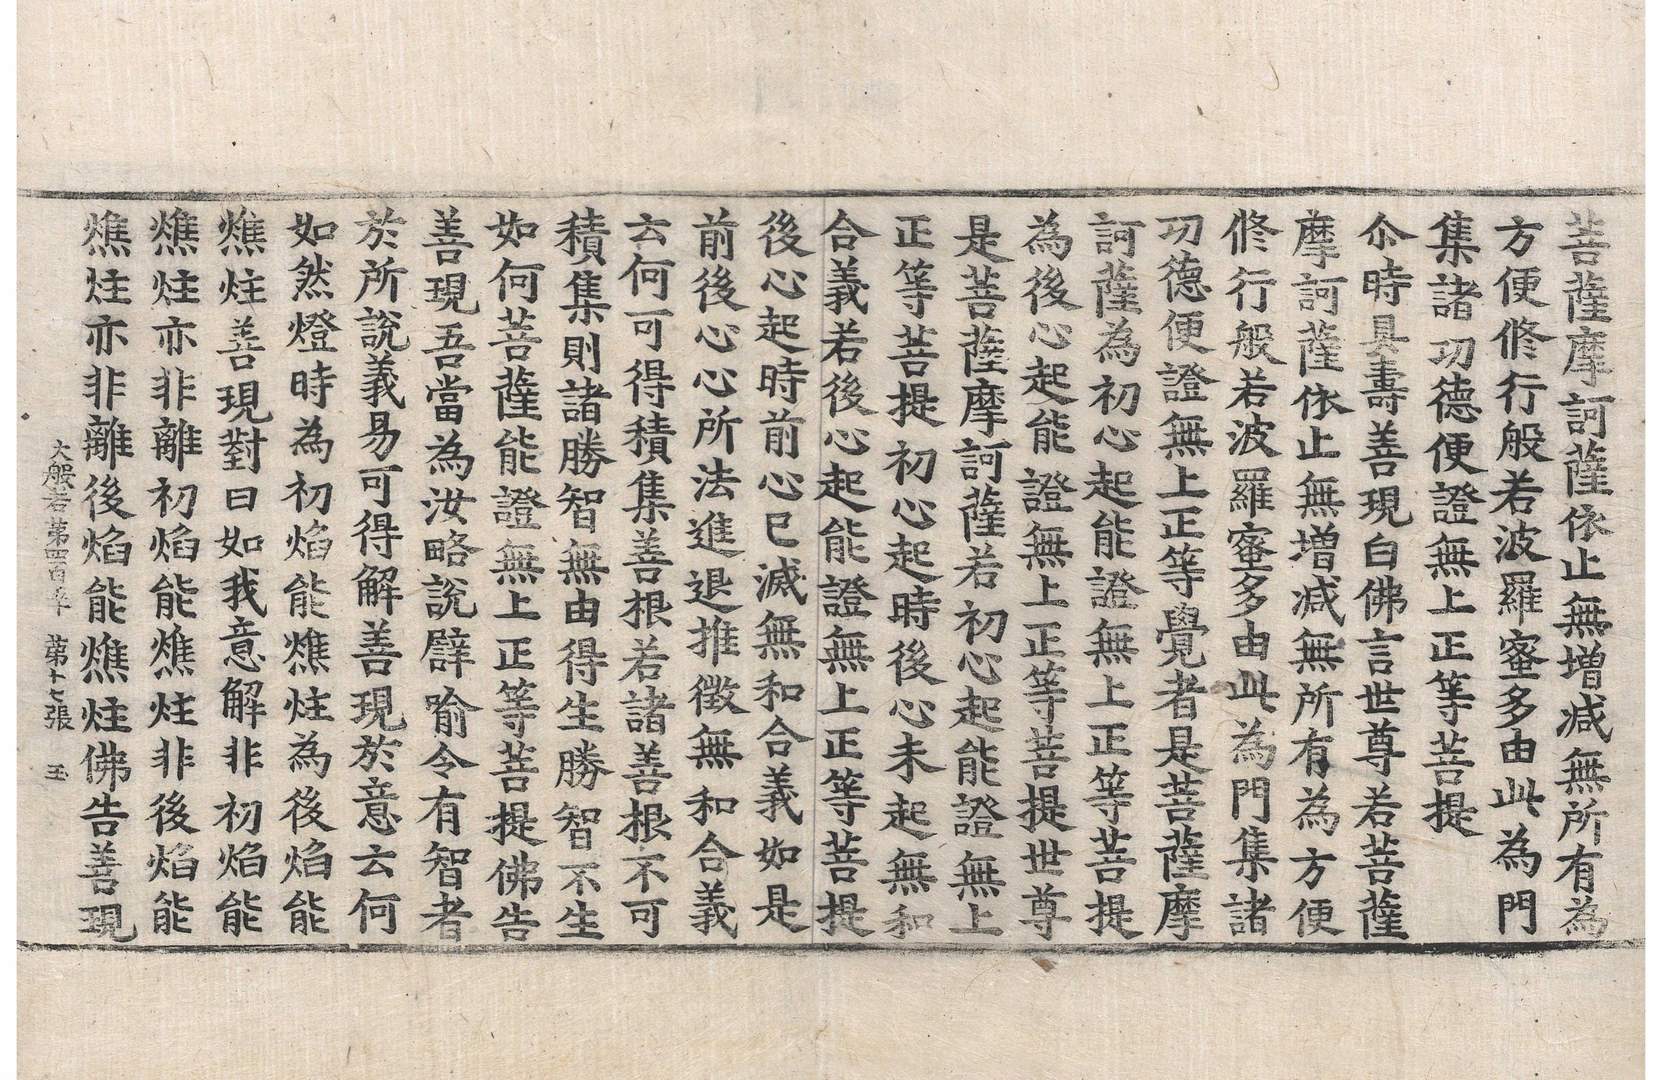 菩薩摩訶薩依止無增減無所有為
方便修行般若波羅蜜多由此為門
集諸功德便證無上正等菩提
尒時具壽善現白佛言世尊若菩薩
摩訶薩依止無增減無所有為方便
修行般若波羅蜜多由此為門集諸
功德便證無上正等覺者是菩薩摩
訶薩為初心起能證無上正等菩提
為後心起能證無上正等菩提世尊
是菩薩摩訶薩若初心起能證無上
正等菩提初心起時後心未起無和
合義若後心起能證無上正等菩提
後心起時前心已滅無和合義如是
前後心心所法進退推徵無和合義
云何可得積集善根若諸善根不可
積集則諸勝智無由得生勝智不生
如何菩薩能證無上正等菩提佛告
善現吾當為汝略說譬喻令有智者
於所說義易可得解善現於意云何
如然燈時為初焰能燋炷為後焰能
燋炷善現對曰如我意解非初焰能
燋炷亦非離初焰能燋炷非後焰能
燋炷亦非離後焰能燋炷佛告善現
大般若第四百五十 第十七張 玉